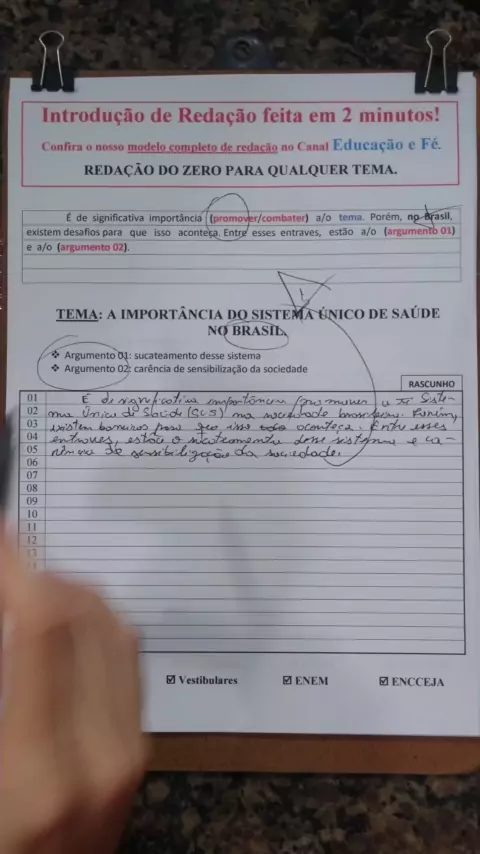 Introdução de Redação feita em 2 minutos!
Confira o nosso modelo completo de redação no Canal Educação e Fé.
REDAÇÃO DO ZERO PARA QUALQUER TEMA.
É de significativa importância (promover/combater) a/o tema. Porém, no Brasil,
existem desafios para que isso aconteça. Entre esses entraves, estão a/o (argumento 01)
e a/o (argumento 02).
TEMA: A IMPORTÂNCIA DO SISTEMA ÚNICO DE SAÚDE
NO BRASIL.
❖ Argumento 01: sucateamento desse sistema
❖ Argumento 02: carência de sensibilização da sociedade
RASCUNHO
01 É de significativa importância promover o Siste-
02 ma Único de Saúde (SUS) na sociedade brasileira. Porém,
03 existem barreiras para que isso aconteça. Entre esses
04 entraves, estão o sucateamento desse sistema e ca-
05 rência de sensibilização da sociedade.
06
07
08
09
10
11
12
13
☑ Vestibulares ☑ ENEM ☑ ENCCEJA